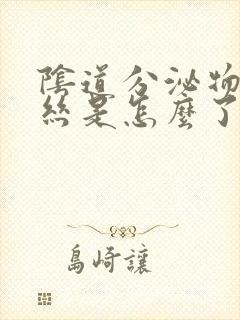 陰道分泌物
絲是怎麼了
島崎讓